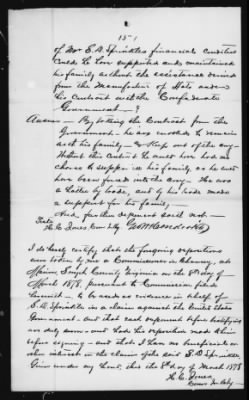 15
of Mr S. B. Sprinkles financial condition
Could he have supported and maintained
his family without the assistance derived
from the Manufacture of Hats under
his Contract with the Confederate
Government—?
Answer— By getting the Contract from the
Government— he was enabled to remain
with his family— & Keep out of the army—
Without this Contract he must have had no
chance to support his family, as he must
have been forced into the Army— He was
a hatter by trade, and by his trade made
a support for his family—
And further deponent said not—
Teste
H. C. Jones Com in Chy
I do hereby certify that the foregoing depositions
were taken by me a Commissioner in Chancery, at
Marion, Smyth County Virginia on the 8th day of
March 1878, pursuant to Commission filed
herewith— to be used as evidence in behalf of
S. B. Sprinkle in a claim against the United States
Government— and that each deponent before testifying
was duly sworn— and had his deposition read to him
before signing— and that I have no beneficial or
other interest in the claim of the said S. B. Sprinkle.
Given under my hand, this the 8th day of March 1878
H. C. Jones
Comr in Chy